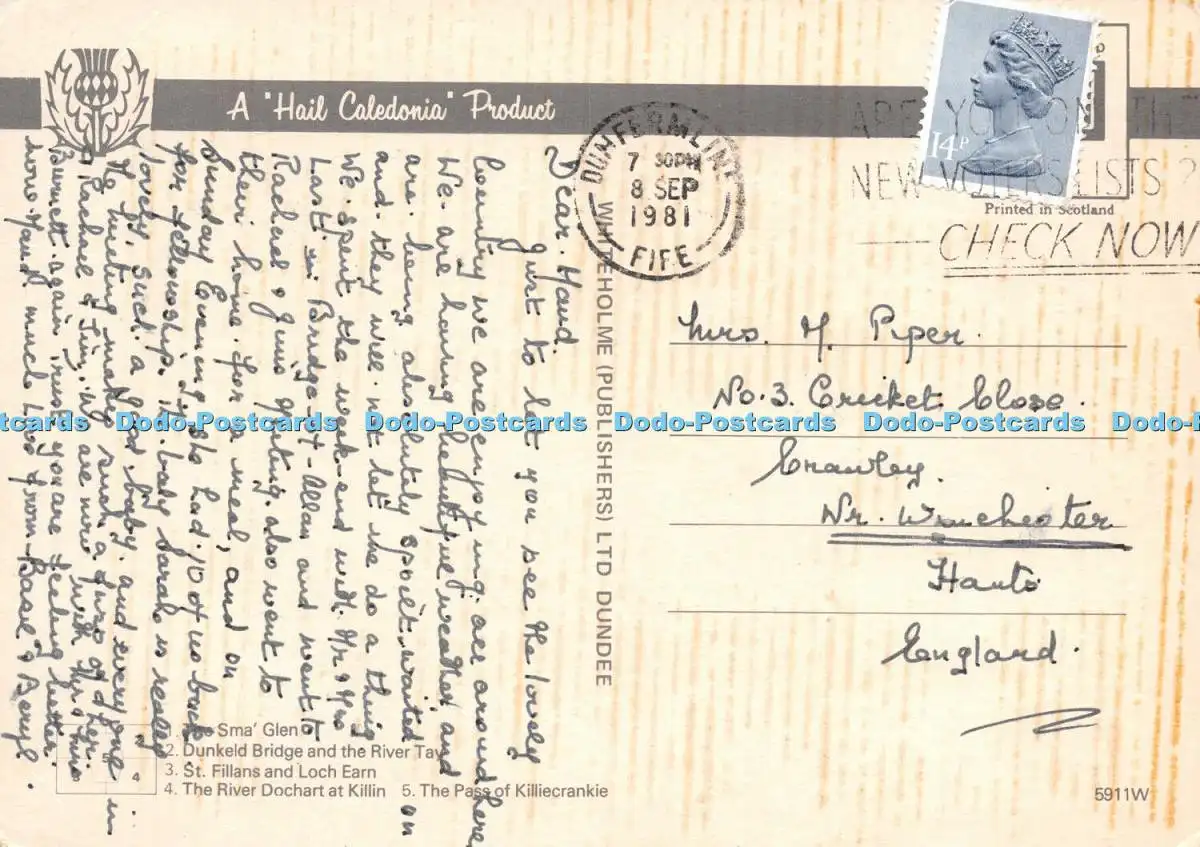 A "Hail Caledonia" Product
14P
DUNFERMLINE
7 30PM
8 SEP
1981
FIFE
ARE YOU ON THE
NEW VOTERS LISTS ?
CHECK NOW
Printed in Scotland
WHITEHOLME (PUBLISHERS) LTD DUNDEE
Dear. Maud.
Just to let you see the lovely
Country we are enjoying. all around here
We. are having beautiful weather and
are. being absolutely spoilt. waited on
and. they will not let me do a thing
We. Spent the week-end with. Mr & Mrs
Last in Bridge of-Allan and went to
Rachael & Jims meeting. also went to
their home. for a meal, and on
Sunday Evening also had. 10 of us back
for fellowship. The. baby Sarah is really
lovely, Such a good baby. and everyone in
the meeting makes such a fuss of her
Rachael & Jim, we are now with
Burnett. again. trust you are feeling better.
now Maud much Love from Basil & Beryl.
Mrs. M. Piper.
No. 3. Cricket Close.
Crawley.
Nr. Winchester
Hants
England.
Dodo-Postcards Dodo-Postcards Dodo-Postcards Dodo-Postcards Dodo-Postcards
1. The Sma' Glen
2. Dunkeld Bridge and the River Tay
3. St. Fillans and Loch Earn
4. The River Dochart at Killin 5. The Pass of Killiecrankie
4
5911W